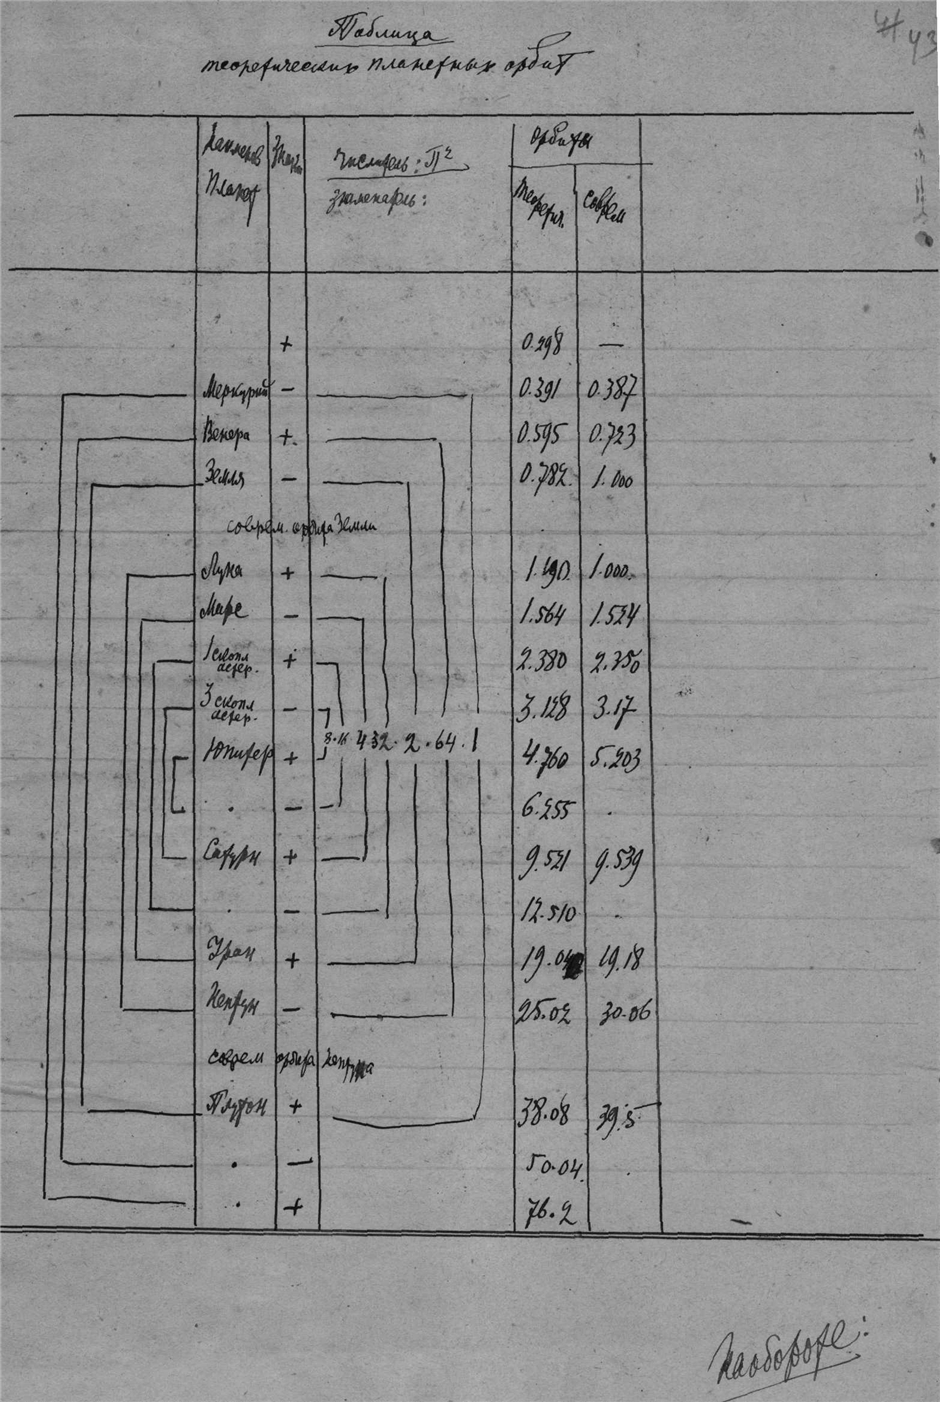 43
Таблица
теоретических планетных орбит
Наименов Знаки Числитель: П² орбиты
планет знаменатель: теоретич. соврем
+ 0.298 —
Меркурий − 0.391 0.387
Венера + 0.595 0.723
Земля − 0.782 1.000
соврем. орбита Земли
Луна + 1.190 1.000
Марс − 1.564 1.524
1 скопл астер. + 2.380 2.350
3 скопл астер. − 3.128 3.17
8·16 4 32·2·64·1
Юпитер + 4.760 5.203
. − 6.255 .
Сатурн + 9.521 9.539
. − 12.510 .
Уран + 19.04 19.18
Нептун − 25.02 30.06
соврем орбита Нептуна
Плутон + 38.08 39.5
. − 50.04 .
. + 76.2
На обороте: